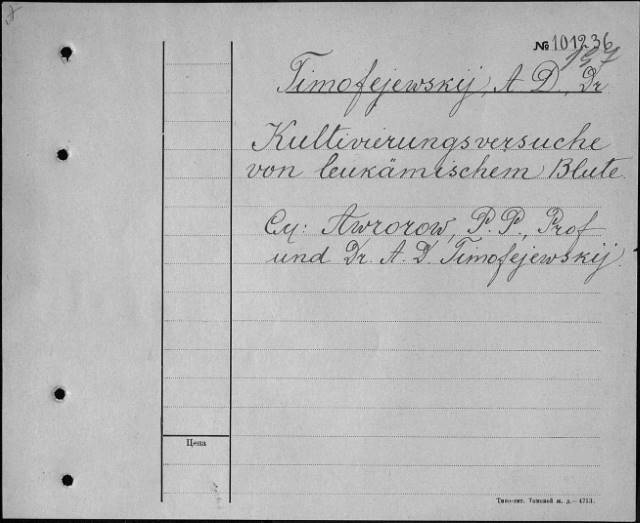 № 101236
157
Timofejewskij, A. D., Dr
Kultivierungsversuche
von leukämischem Blute.
См: Awrorow, P. P., Prof
und Dr. A. D. Timofejewskij.
Цена
Типо-лит. Томской ж. д.—4713.